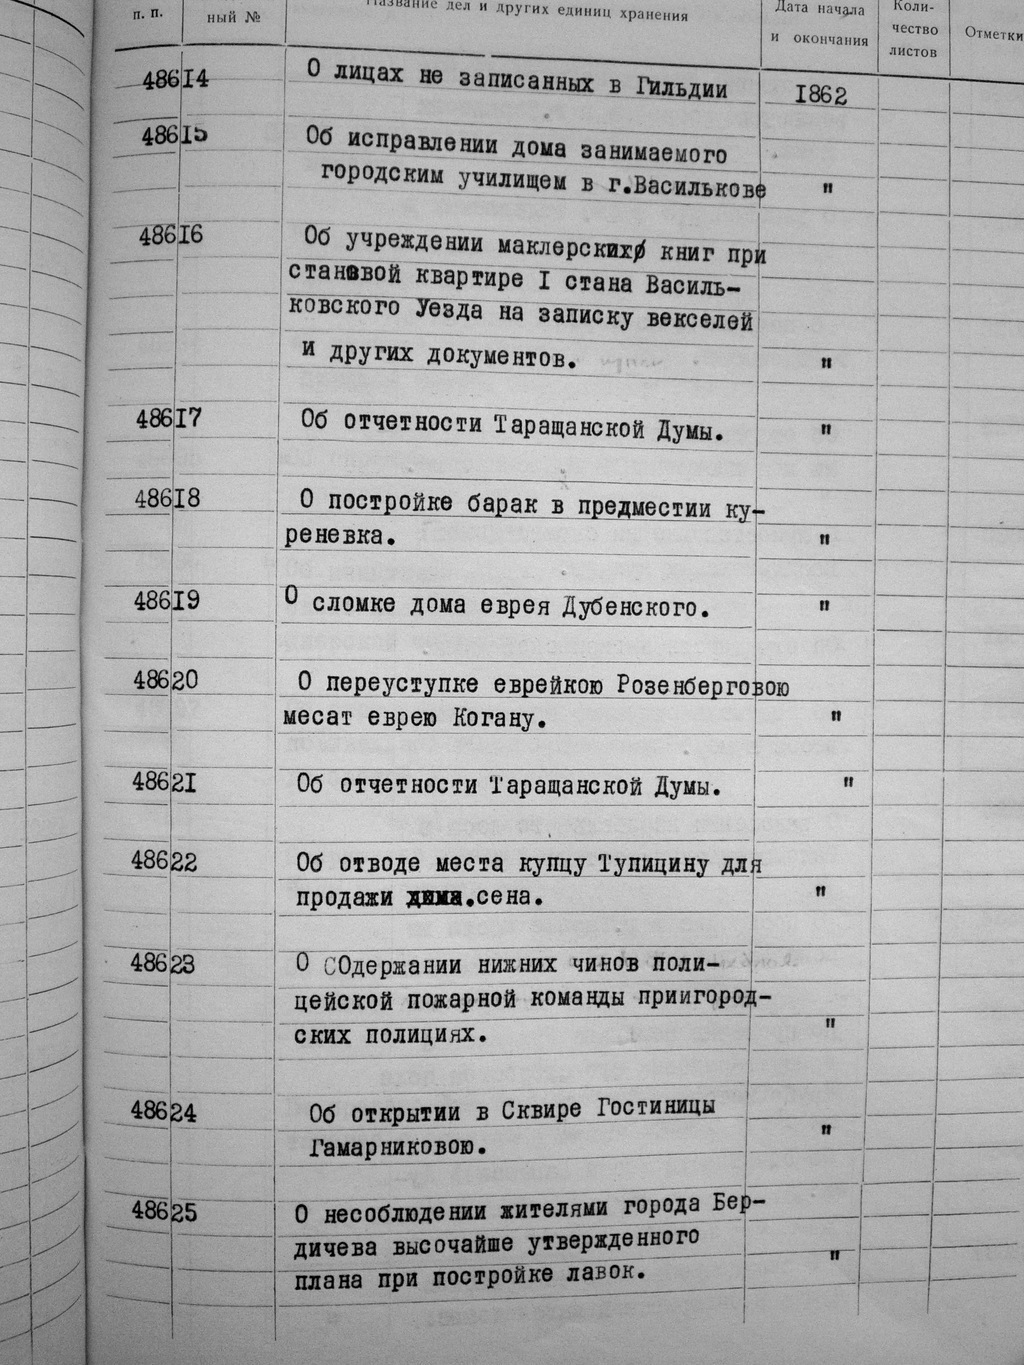 п. п.
ный №
Название дел и других единиц хранения
Дата начала
и окончания
Коли-
чество
листов
Отметки
48614 О лицах не записанных в Гильдии 1862
48615 Об исправлении дома занимаемого
городским училищем в г.Василькове "
48616 Об учреждении маклерских книг при
становой квартире I стана Василь-
ковского Уезда на записку векселей
и других документов. "
48617 Об отчетности Таращанской Думы. "
48618 О постройке барак в предместии ку-
реневка. "
48619 О сломке дома еврея Дубенского. "
48620 О переуступке еврейкою Розенберговою
месат еврею Когану. "
48621 Об отчетности Таращанской Думы. "
48622 Об отводе места купцу Тупицину для
продажи сена. "
48623 О СОдержании нижних чинов поли-
цейской пожарной команды приигород-
ских полициях. "
48624 Об открытии в Сквире Гостиницы
Гамарниковою. "
48625 О несоблюдении жителями города Бер-
дичева высочайше утвержденного
плана при постройке лавок. "